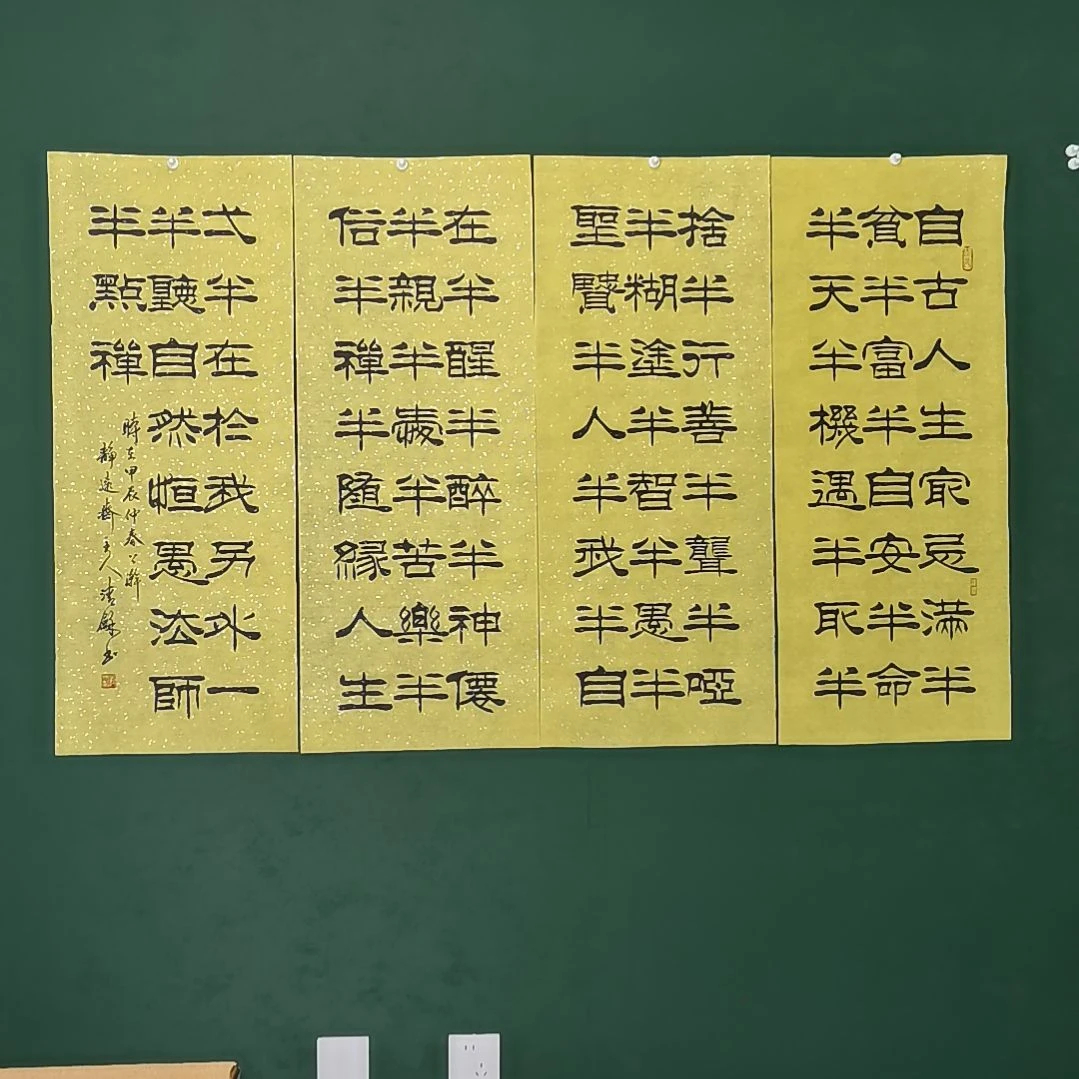 自古人生冣忌滿半
貧半富半自安半命
半天半機遇半取半
捨半行善半聾半啞
半糊塗半智半愚半
聖賢半人半我半自
在半醒半醉半神僊
半親半愛半苦樂半
俗半禪半隨緣人生
弌半在於我另外一
半聽自然恒愚法師
半點禪
時在甲辰仲春
靜遠齋主人清書